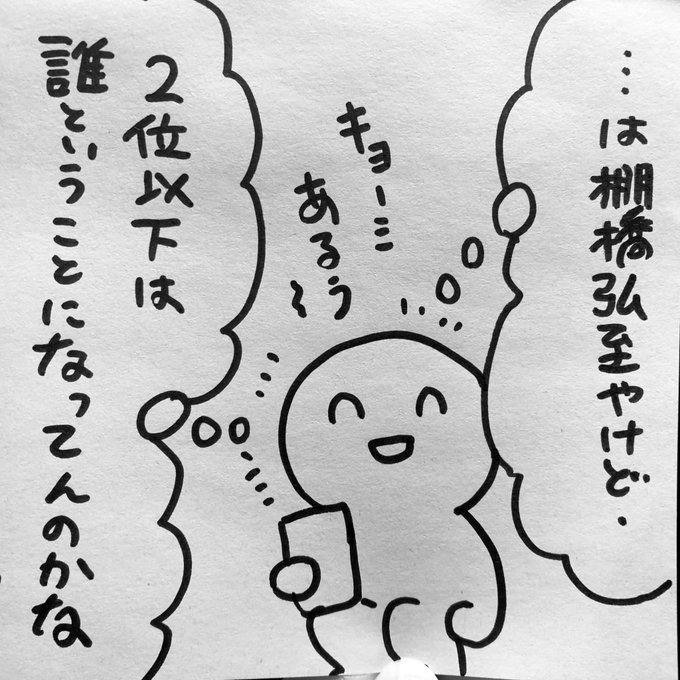 …は棚橋弘至やけど、
キョーミ
あるぅ〜
2位以下は
誰ということになってんのかな